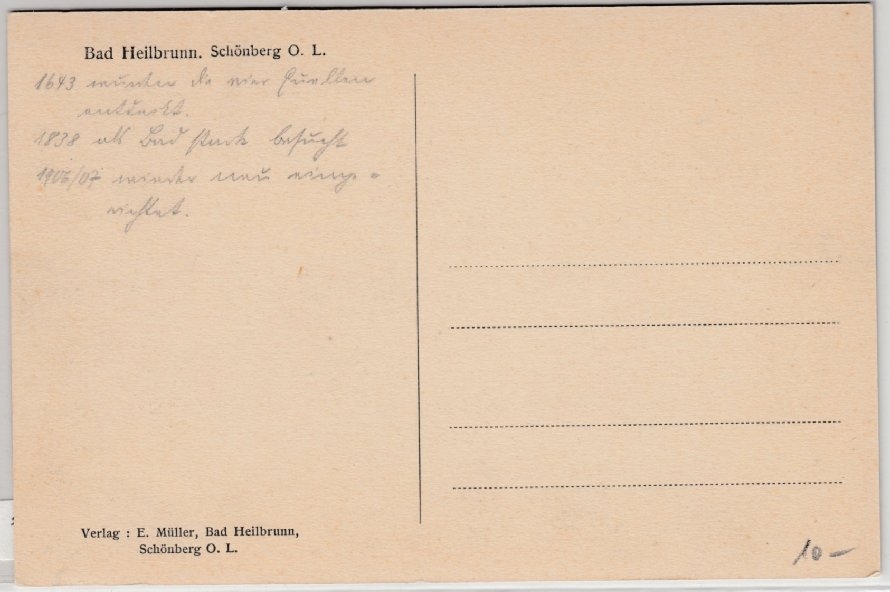 Bad Heilbrunn. Schönberg O. L.
1643 wurden die vier Quellen
entdeckt.
1838 als Bad stark besucht
1906/07 wieder neu einge=
richtet.
Verlag : E. Müller, Bad Heilbrunn,
Schönberg O. L.
10 —